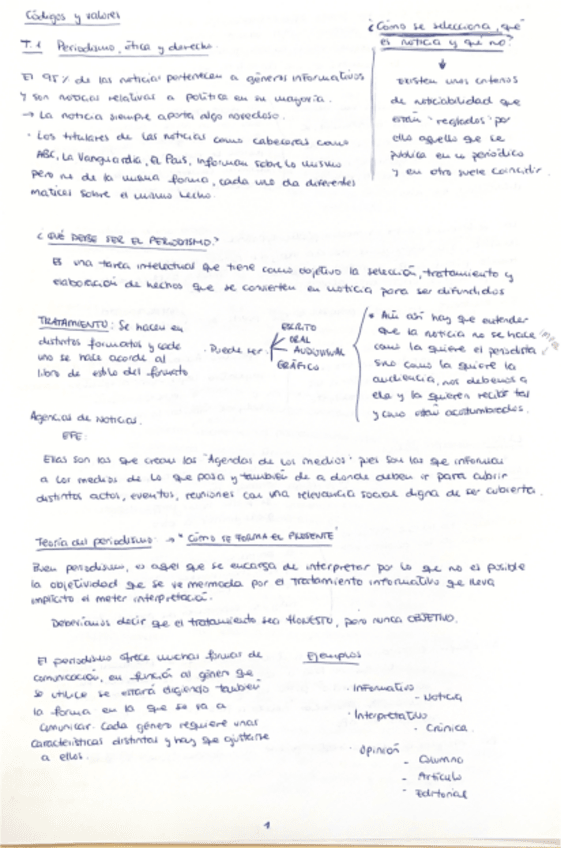 Códigos y valores
T.1 Periodismo, ética y derecho.
El 95% de las noticias pertenecen a géneros informativos
y son noticias relativas a política en su mayoría.
→ La noticia siempre aporta algo novedoso.
· Los titulares de las noticias como cabeceras como
ABC, La Vanguardia, El País, informan sobre lo mismo
pero no de la misma forma, cada uno da diferentes
matices sobre el mismo hecho.
¿Cómo se selecciona, qué
es noticia y qué no?
Existen unos criterios
de noticiabilidad que
están "reglados" por
ello aquello que se
publica en un periódico
y en otro suele coincidir.
¿QUÉ DEBE SER EL PERIODISMO?
Es una tarea intelectual que tiene como objetivo la selección, tratamiento y
elaboración de hechos que se convierten en noticia para ser difundidos
TRATAMIENTO: Se hacen en
distintos formatos y cada
uno se hace acorde al
libro de estilo del formato
· Puede ser
ESCRITO
ORAL
AUDIOVISUAL
GRÁFICO.
* Aún así hay que entender
que la noticia no se hace
como la quiere el periodista
sino como la quiere la
audiencia, nos debemos a
ella y la quieren recibir tal
y como están acostumbrados.
Agencias de noticias.
EFE:
Ellas son las que crean las "Agendas de los medios" pues son las que informan
a los medios de lo que pasa y también de a donde deben ir para cubrir
distintos actos, eventos, reuniones con una relevancia social digna de ser cubierta.
Teoría del periodismo: → "CÓMO SE FORMA EL PRESENTE"
Buen periodismo, es aquel que se encarga de interpretar por lo que no es posible
la objetividad que se ve mermada por el tratamiento informativo que lleva
implícito el meter interpretación.
Deberíamos decir que el tratamiento sea HONESTO, pero nunca OBJETIVO.
El periodismo ofrece muchas formas de
comunicación, en función al género que
se utilice se estará eligiendo también
la forma en la que se va a
comunicar. Cada género requiere unas
características distintas y hay que ajustarse
a ellos.
Ejemplos
· Informativo
- Noticia
· Interpretativo
- Crónica.
· Opinión
- Columna
- Artículo
- Editorial
1